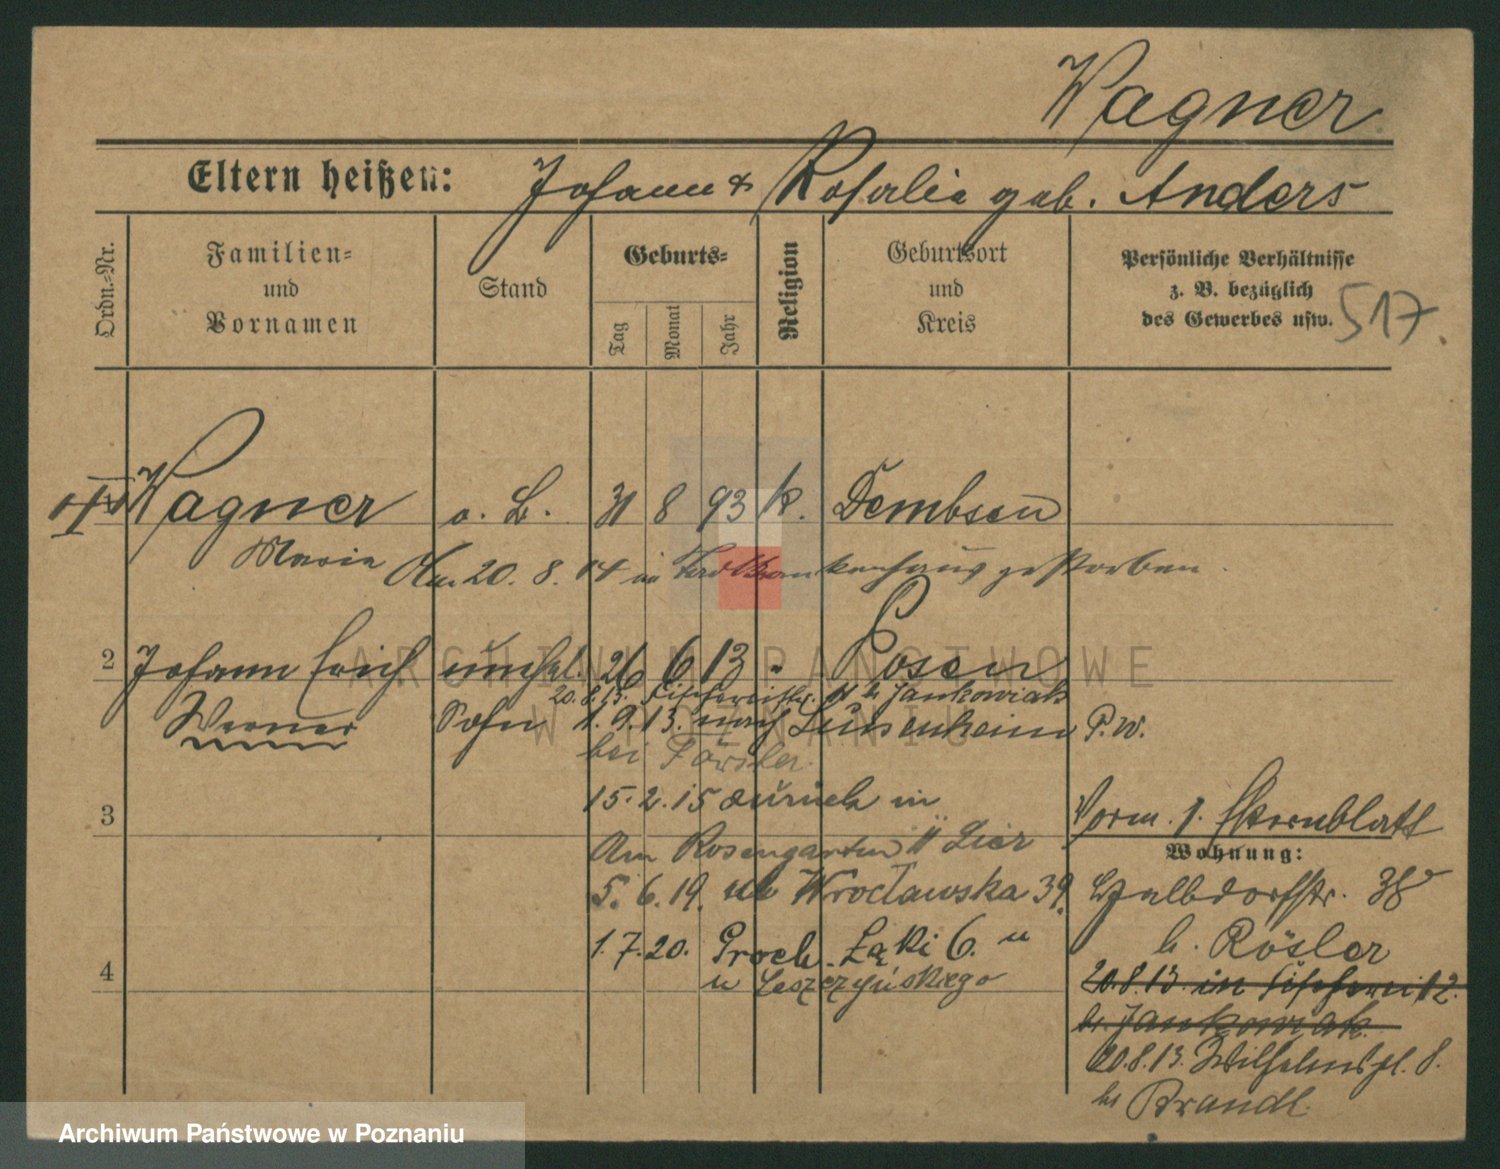 Wagner
Eltern heißen: Johann & Rosalie geb. Anders
Ordn.-Nr.
Familien-
und
Vornamen
Stand
Geburts-
Tag
Monat
Jahr
Religion
Geburtsort
und
Kreis
Persönliche Verhältnisse
z. B. bezüglich
des Gewerbes usw.
517.
Wagner o. B. 31 8 93 k. Dembsen
Maria Am 20. 8. 14 in Krankenhaus gestorben.
2 Johann Erich unehel. 26 6 13 " Posen
20.8.13. Fischereistr. b. Jankowiak
Werner Sohn 1. 9. 13. nach Luisenhain P.W.
bei Förster.
15. 2. 15 zurück in
3
Am Rosengarten 11 Lier
Vorm. 1. Sternblatt
Wohnung:
5. 6. 19. Wrocławska 39.
Halbdorfstr. 38
b. Rösler
1. 7. 20. Groch. Łąki 6.
u Leszczyńskiego
4
20.8.13. in Fischerei 12.
b. Jankowiak.
20.8.13. Wilhelmspl. 8.
bei Brandl.
ARCHIWUM PAŃSTWOWE
W POZNANIU
Archiwum Państwowe w Poznaniu